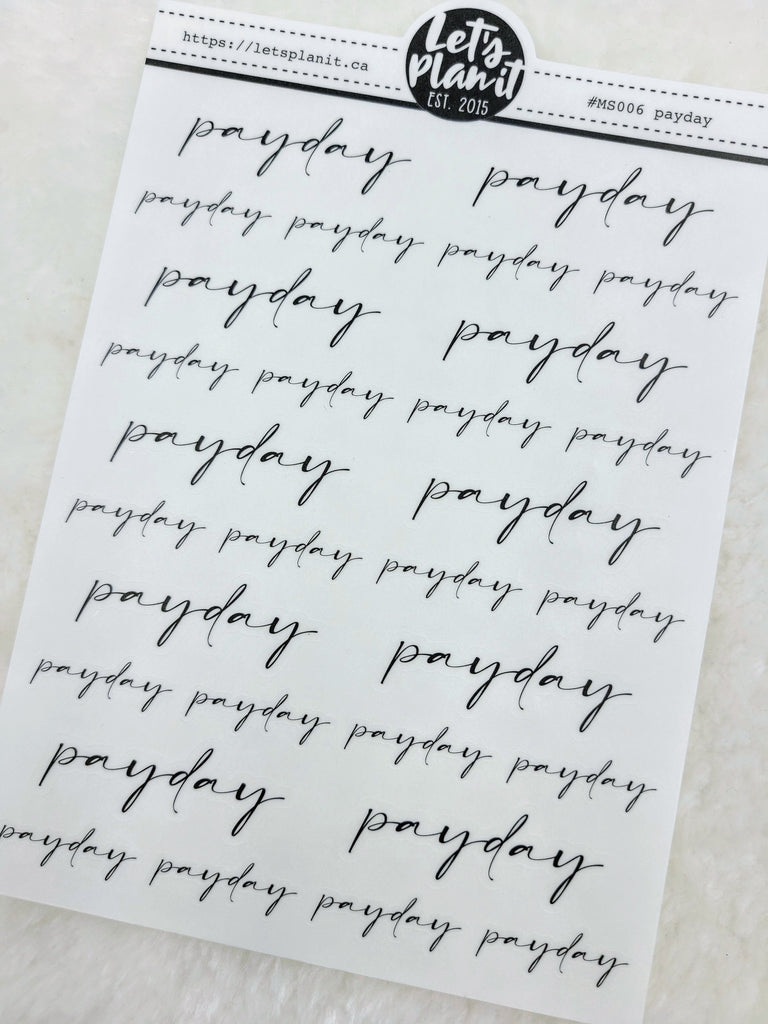 https://letsplanit.ca
Let's
plan it
EST. 2015
#MS006 payday
payday payday
payday payday payday payday
payday payday
payday payday payday payday
payday payday
payday payday payday payday
payday payday
payday payday payday payday
payday payday
payday payday payday payday